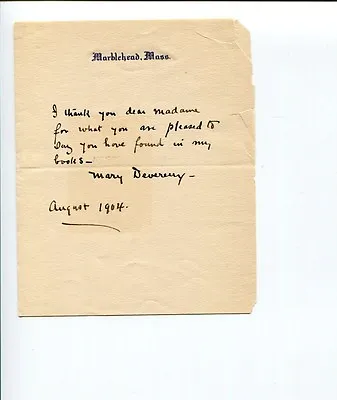 Marblehead, Mass.
I thank you dear madame
for what you are pleased to
say you have found in my
books—
Mary Devereux—
August 1904.